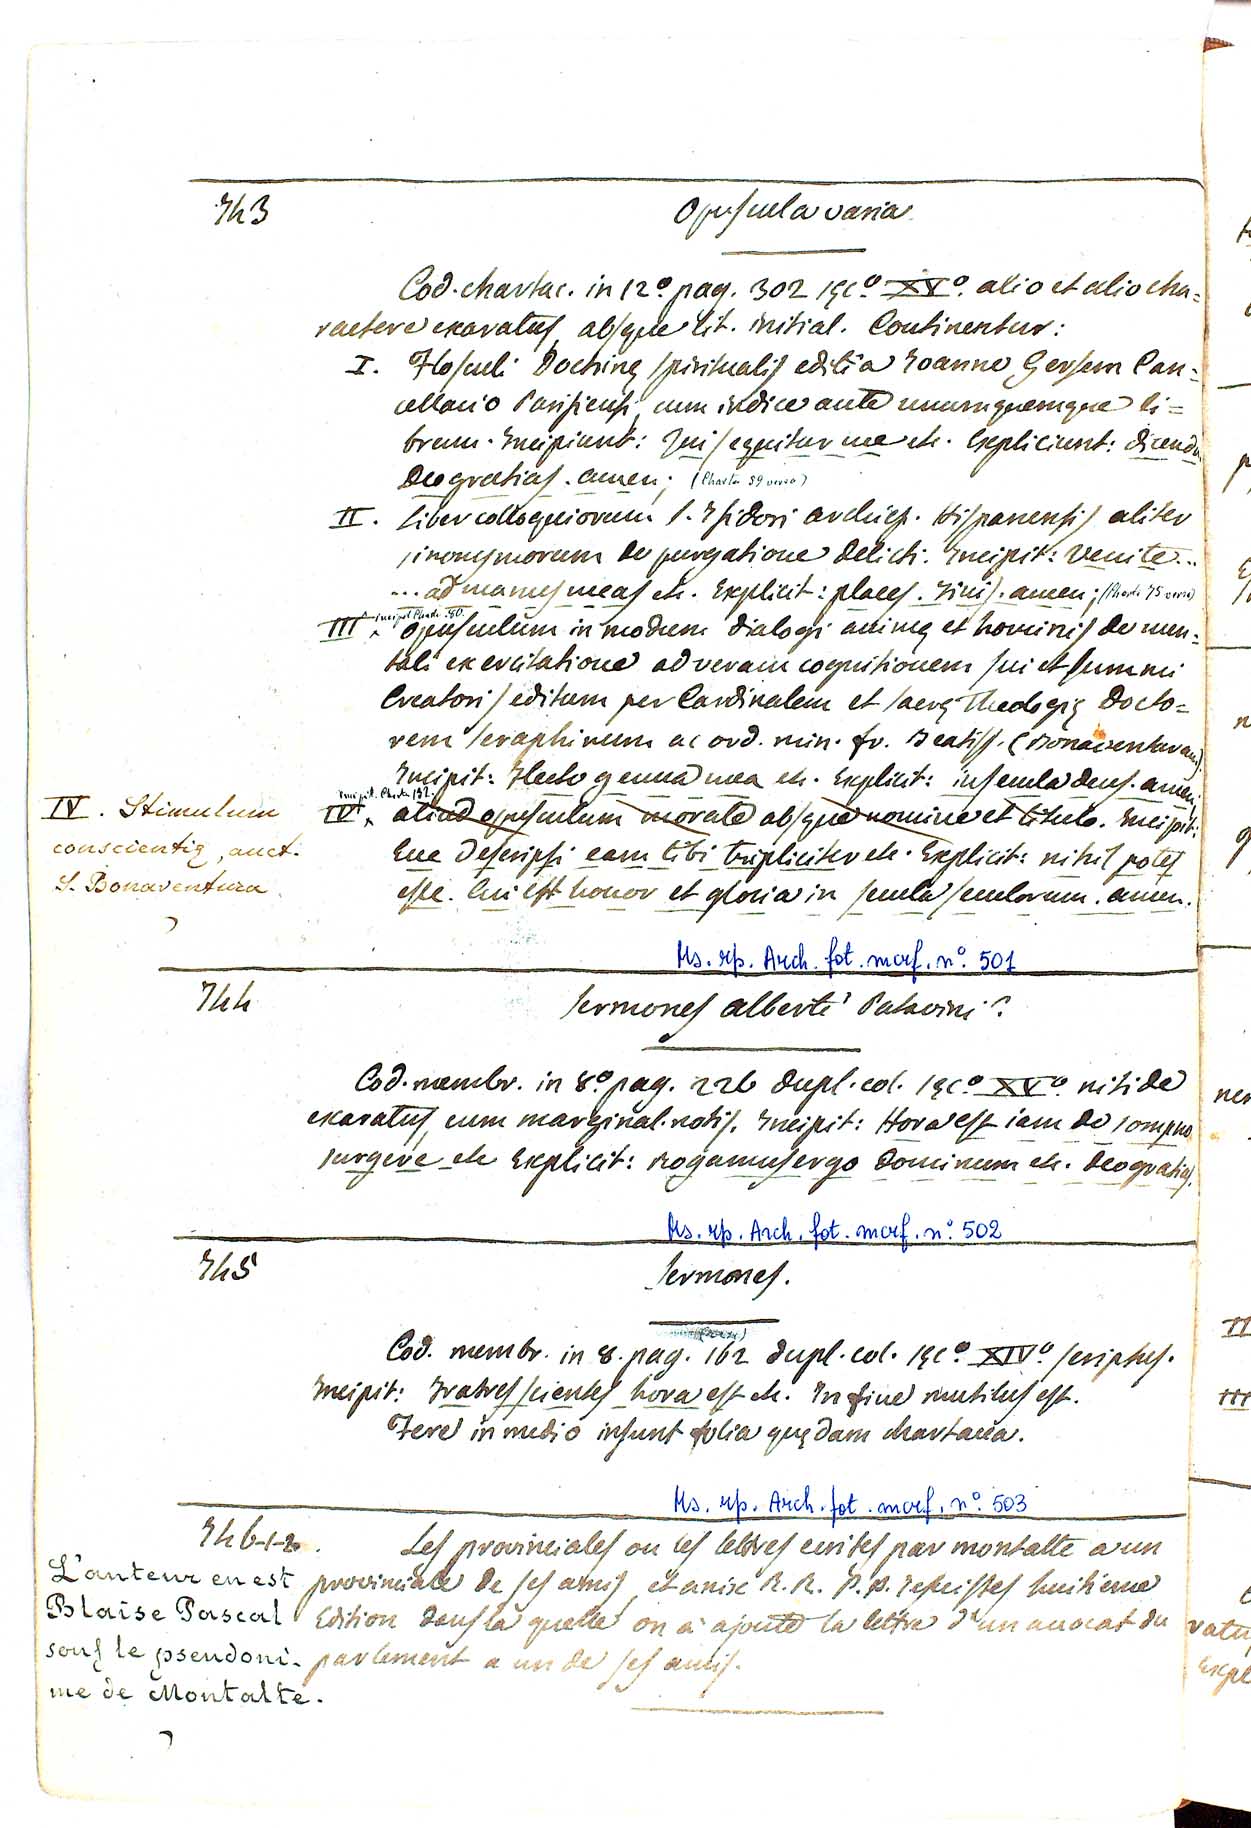 743
Opuscula varia
Cod. chartac. in 12º pag. 302 sęcº XVº. alio et alio cha=
ractere exaratus, absque lit. initial. Continentur:
I. Flosculi Doctrinę spiritualis editi a Joanne Gersem Can=
cellario Parisiensi, cum indice ante unumquemque li=
brum. Incipiunt: Qui sequitur me etc. Expliciunt: dicendu
Deo gratias. amen; (Charta 59 verso)
II. Liber colloquiorum S. Isidori archiep. Hispanensis aliter
sinonymorum de purgatione delicti. Incipit: Venite...
... ad manus meas etc. Explicit: places. Finis. amen; (Charta 75 verso)
Incipit Charta 80.
III. Opusculum in modum dialogi animę et hominis de men=
tali exercitatione ad veram cognitionem sui et summi
Creatoris editum per Cardinalem et sacrę Theologię Docto=
rem seraphinum ac ord. min. fr. Beatiss. (Bonaventuram).
Incipit: Flecto genua mea etc. Explicit: in secula deus. amen;
Incipit. Charta 132.
IV. aliud opusculum morale absque nomine et titulo. Incipit:
Ecce descripsi eam tibi tripliciter etc. Explicit: nihil potest
esse. Cui est honor et gloria in secula seculorum. amen.
IV. Stimulum
conscientię, auct.
S. Bonaventura
Ms. rp. Arch. fot. mcrf. nº. 501
744
Sermones Alberti Patavini?
Cod. membr. in 8º pag. 226 dupl. col. sęcº XVº nitide
exaratus, cum marginal. notis. Incipit: Hora est iam de sompno
surgere etc Explicit: Rogamus ergo Dominum etc. Deo gratias.
Ms. rp. Arch. fot. mcrf. nº 502
745
Sermones.
Cod. membr. in 8. pag. 162 dupl. col. sęcº XIVº. scriptus.
Incipit: Fratres scientes hora est etc. In fine mutilus est.
Fere in medio insunt folia quędam chartacea.
Ms. rp. Arch. fot. mcrf. nº 503
746-1-2.
Les provinciales ou les lettres ecrites par montalte a un
provinciale de ses amis, et aux R. R. P. P. Jesuistes huitieme
Edition dans la quelle on a ajouté la lettre d'un avocat du
parlement a un de ses amis.
L'auteur en est
Blaise Pascal
sous le pseudoni-
me de Montalte.